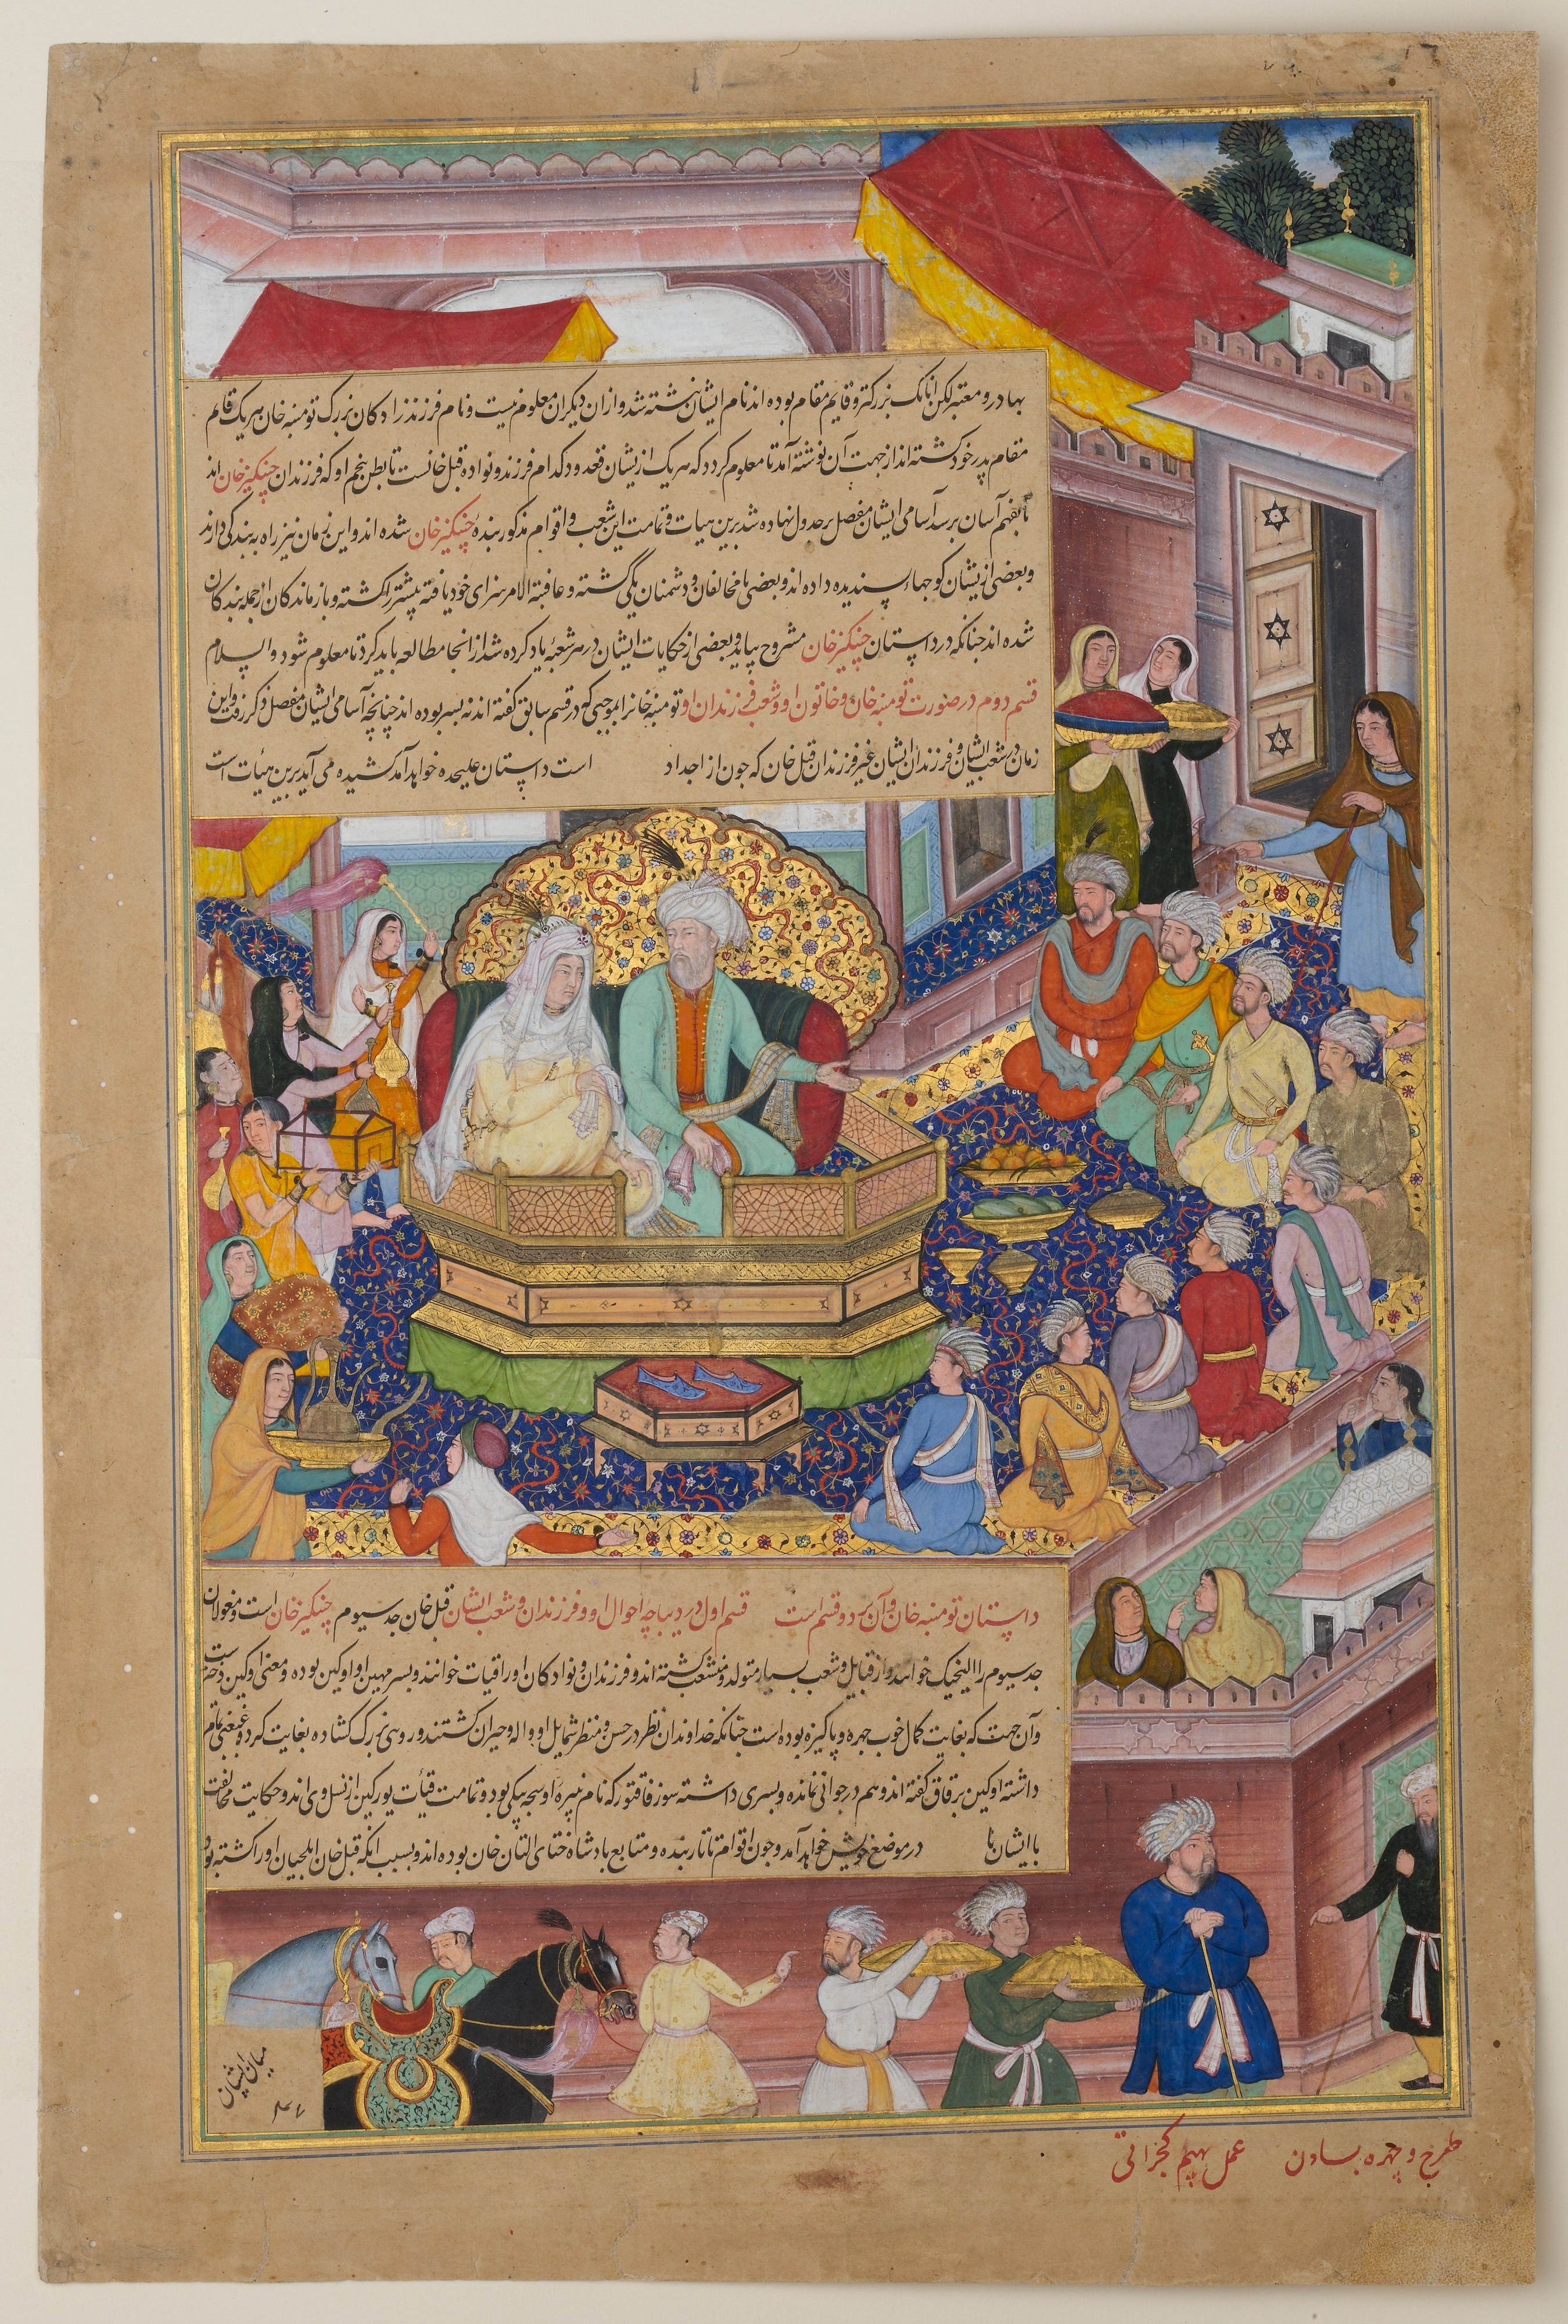 بهادر و معتبر لکن انانک بزرکتر و قایم مقام بوده اند نام ایشان نبشته شد و ازان دیکران معلوم نیست و نام فرزند زادکان بزرک تومنه خان هر یک قایم
مقام پدر خود کشته اند از جهت آن نوشته آمد تا معلوم کردد که هر یک از یشان قعدود کدام فرزند و نواده قبل خانست تا بطن پنجم او که فرزندان چنکیز خان اند
تا بفهم آسان برسد آسامی ایشان مفصل بر جدول نهاده شد برین هیات و تمامت این شعب و اقوام مذکور بندهٔ چنکیز خان شده اند و این زمان نیز راه به بندکی دارند
و بعضی از یشان کوجهاء پسندیده داده اند و بعضی با مخالفان و دشمنان یکی کشته و عاقبة الامر سزای خود یافته بیشتر را کشته و باز ماندکان از جمله بندکان
شده اند جنانکه در داستان چنکیز خان مشروح بیاید و بعضی از حکایات ایشان در هر شعبهٔ یاد کرده شد از انجا مطالعه باید کرد تا معلوم شود والسلام
قسم دوم در صورت تومنه خان و خاتون او و شعب فرزندان او تومنه خانرا بموجبی که در قسم سابق کفته اند نه پسر بوده اند چنانچه آسامی ایشان مفصل ذکر رفت و این
زمان شعب ایشان و فرزندان ایشان غیر فرزندان قبل خان که جون از اجداد است داستان علیحده خواهد آمد کشیده می آید برین هیأت است
داستان تومنه خان و آن بر دو قسم است قسم اول در دیباچهٔ احوال او و فرزندان و شعب ایشان قبل خان جد سیوم چنکیز خان است و مغولان
جد سیوم را الینجیک خوانند و از قبایل و شعب بسیار متولد و منشعب کشته اند و فرزندان و نوادکان او را قیات خوانند و پسر مهین او اوکین بوده و معنی اوکین دخترست
وآن جهت که بغایت کمال خوب جهره و پاکیزه بوده است جنانکه خداوندان نظر در حسن و منظر شمایل او واله و حیران کشتند و روی بزرک کشاده بغایت کرد و غبغبی تمام
داشته اوکین برقاق کفته اند و هم در جوانی نمانده و پسری داشته سورقاقتو که نام نبیرهٔ او سجه بیکی بود و تمامت قیأت یورکین از نسل وی اند و حکایت مخالفت
با ایشان تا در موضع خویش خواهد آمد و جون اقوام تاتار بنده و متابع بادشاه ختای التان خان بوده اند و بسبب انکه قبل خان ایلچیان او را کشته بود
میان ایشان
طرح و چهره بساون عمل بهیم کجراتی